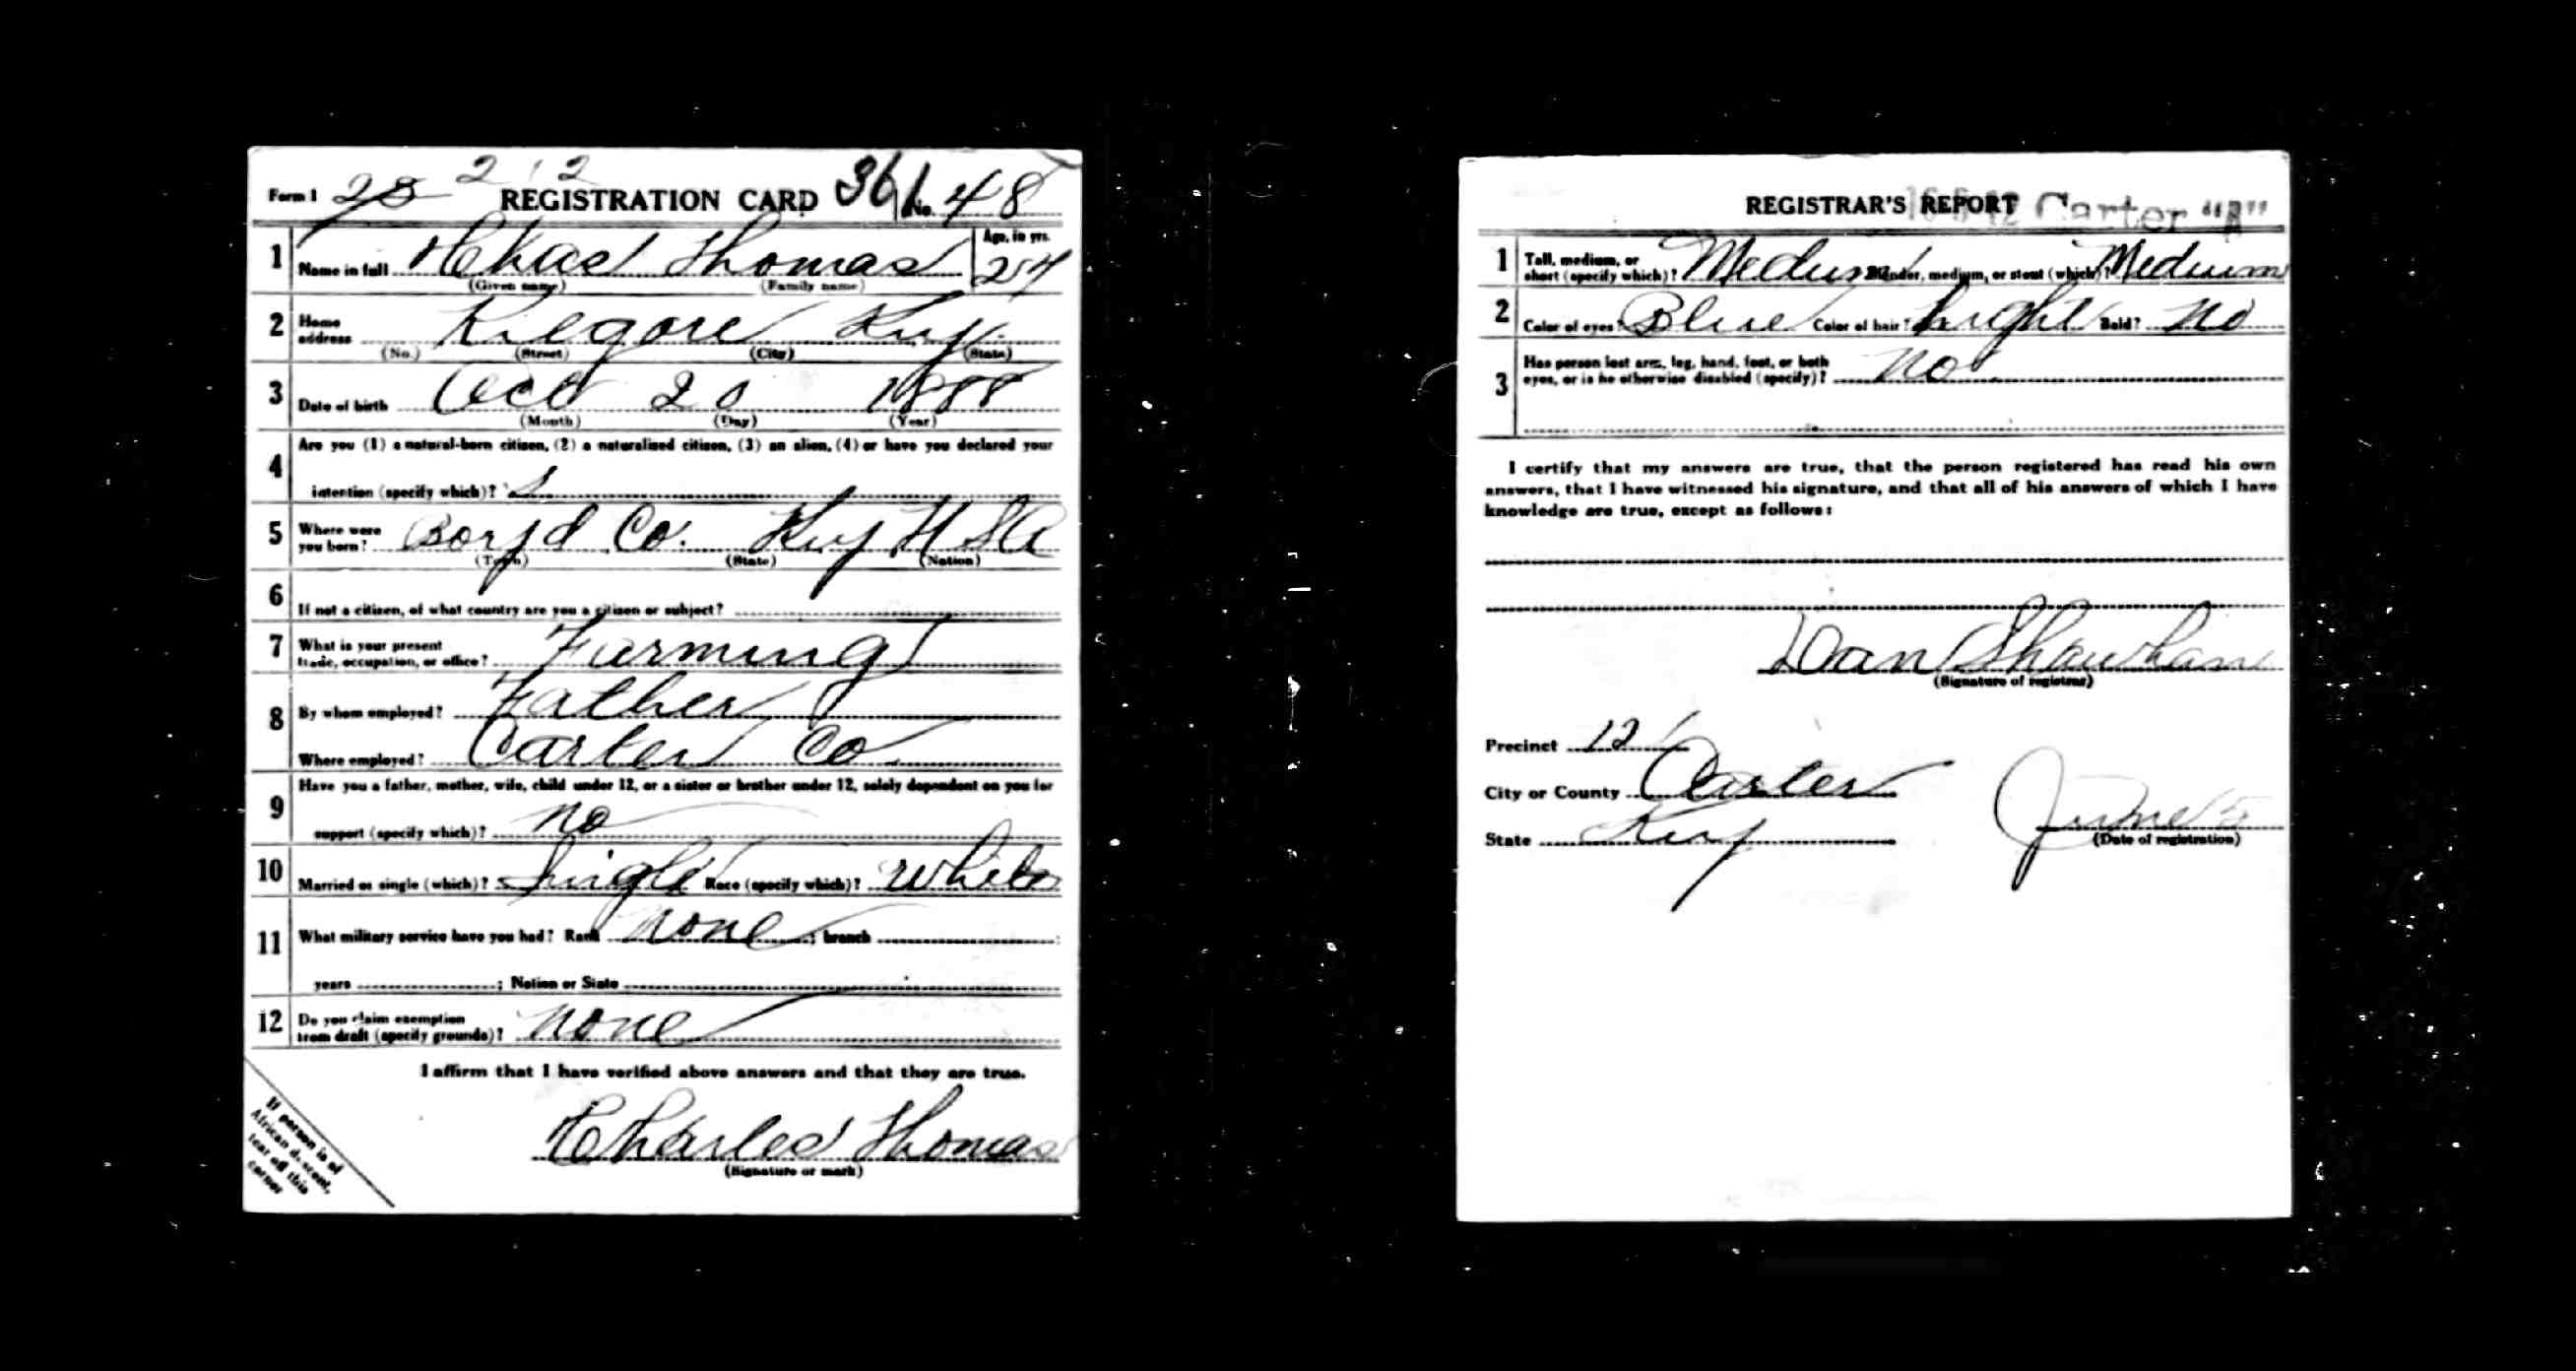 2 2
Form 1 28 REGISTRATION CARD 361 No. 48
1 Name in full Chas Thomas Age, in yrs. 24
(Given name) (Family name)
2 Home address Kilgore Ky.
(No.) (Street) (City) (State)
3 Date of birth Oct 20 1888
(Month) (Day) (Year)
4 Are you (1) a natural-born citizen, (2) a naturalized citizen, (3) an alien, (4) or have you declared your
intention (specify which)? 1
5 Where were you born? Boryd Co. Ky USA
(Town) (State) (Nation)
6 If not a citizen, of what country are you a citizen or subject?
7 What is your present trade, occupation, or office? Farming
8 By whom employed? Father
Where employed? Carter Co
9 Have you a father, mother, wife, child under 12, or a sister or brother under 12, solely dependent on you for
support (specify which)? no
10 Married or single (which)? Single Race (specify which)? White
11 What military service have you had? Rank none; branch
years ; Nation or State
12 Do you claim exemption from draft (specify grounds)? none
I affirm that I have verified above answers and that they are true.
Charles Thomas
(Signature or mark)
If person is of
African descent,
tear off this
corner
REGISTRAR'S REPORT Carter "A"
1 Tall, medium, or short (specify which)? Medium Slender, medium, or stout (which)? Medium
2 Color of eyes? Blue Color of hair? Light Bald? No
3 Has person lost arm, leg, hand, foot, or both eyes, or is he otherwise disabled (specify)? No
I certify that my answers are true, that the person registered has read his own
answers, that I have witnessed his signature, and that all of his answers of which I have
knowledge are true, except as follows:
Dan Shawhan
(Signature of registrar)
Precinct 12
City or County Carter
State Ky
June 5
(Date of registration)